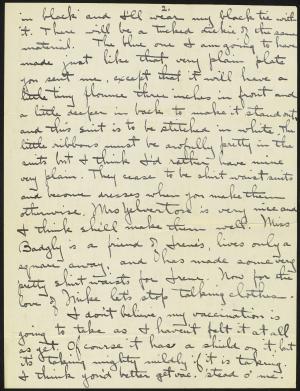 2.
in black and I'll wear my black tie with
it. There will be a tucked dickie of the same
material. The blue one I am going to have
made just like that very plain plate
you sent me, except that it will have a
little tiny flounce three inches in front and
a little deeper in back to make it stand out
and this suit is to be stitched in white. The
little ribbons must be awfully pretty in the
suits but I think I'd rather have mine
very plain. They cease to be shirt waist suits
and become dresses when you make them
otherwise. Mrs is very nice and
I think she'll make them well. Miss
Badgly is a friend of Irene's, lives only a
square away, and has made some very
pretty shirt waists for Irene. Now for the
love of Mike let's stop talking clothes.
I don't believe my vaccination is
going to take as I haven't felt it at all
as yet. Of course it has a shield on it but
it's taking mighty mildly if it is taking.
I think you'd better get one 'stead o' me.